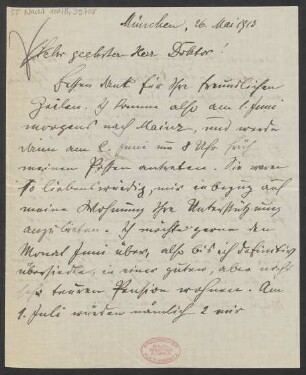 München, 26. Mai 1913
Sehr geehrter Herr Doktor!
Besten Dank für Ihre freundlichen
Zeilen. Ich komme also am 1. Juni
morgens nach Mainz, und werde
dann am 2. Juni um 8 Uhr früh
meinen Posten antreten. Sie waren
so liebenswürdig, mir in bezug auf
meine Wohnung Ihre Unterstützung
anzubieten. Ich möchte gerne den
Monat Juni über, also bis ich definitiv
übersiedle, in einer guten, aber nicht
sehr teuren Pension wohnen. Am
1. Juli würden nämlich 2 mir